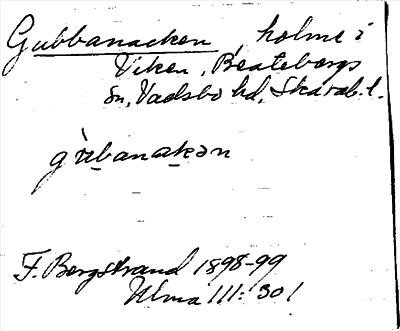 Gubbanacken, holme i
Viken, Beatebergs
sn, Vadsbo hd, Skarab. l.
gu̠banaka̠n
F. Bergstrand 1898-99
Ulma 111:301